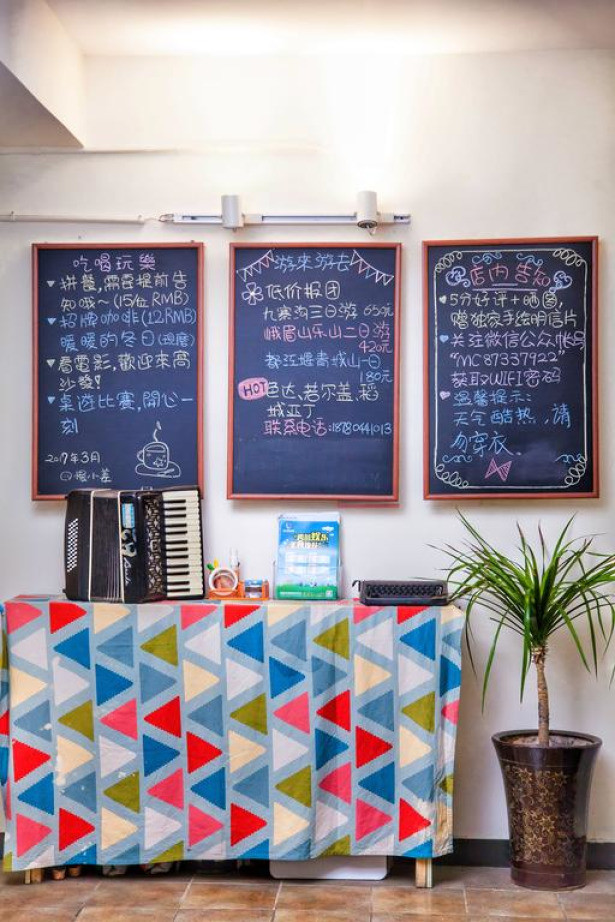 吃喝玩樂
拼餐,需要提前告
知哦~(15/位RMB)
招牌咖啡(12RMB)
暖暖的冬日(现磨)
看電影,歡迎來窝
沙發!
桌遊比賽,開心一
刻
2017年3月
游來游去
低价报团
九寨沟三日游 650元
峨眉山乐山二日游
420元
都江堰青城山一日
180元
HOT 色达、若尔盖、稻
城亚丁
联系电话:18780441013
店内告知
5分好评+晒图,
赠独家手绘明信片
关注微信公众帐号
"MC87337922"
获取WIFI密码
温馨提示:
天气酷热,请
勿穿衣.